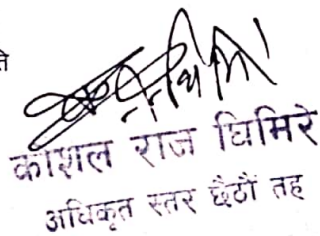 ते
कौशल राज घिमिरे
अधिकृत स्तर छैठौं तह